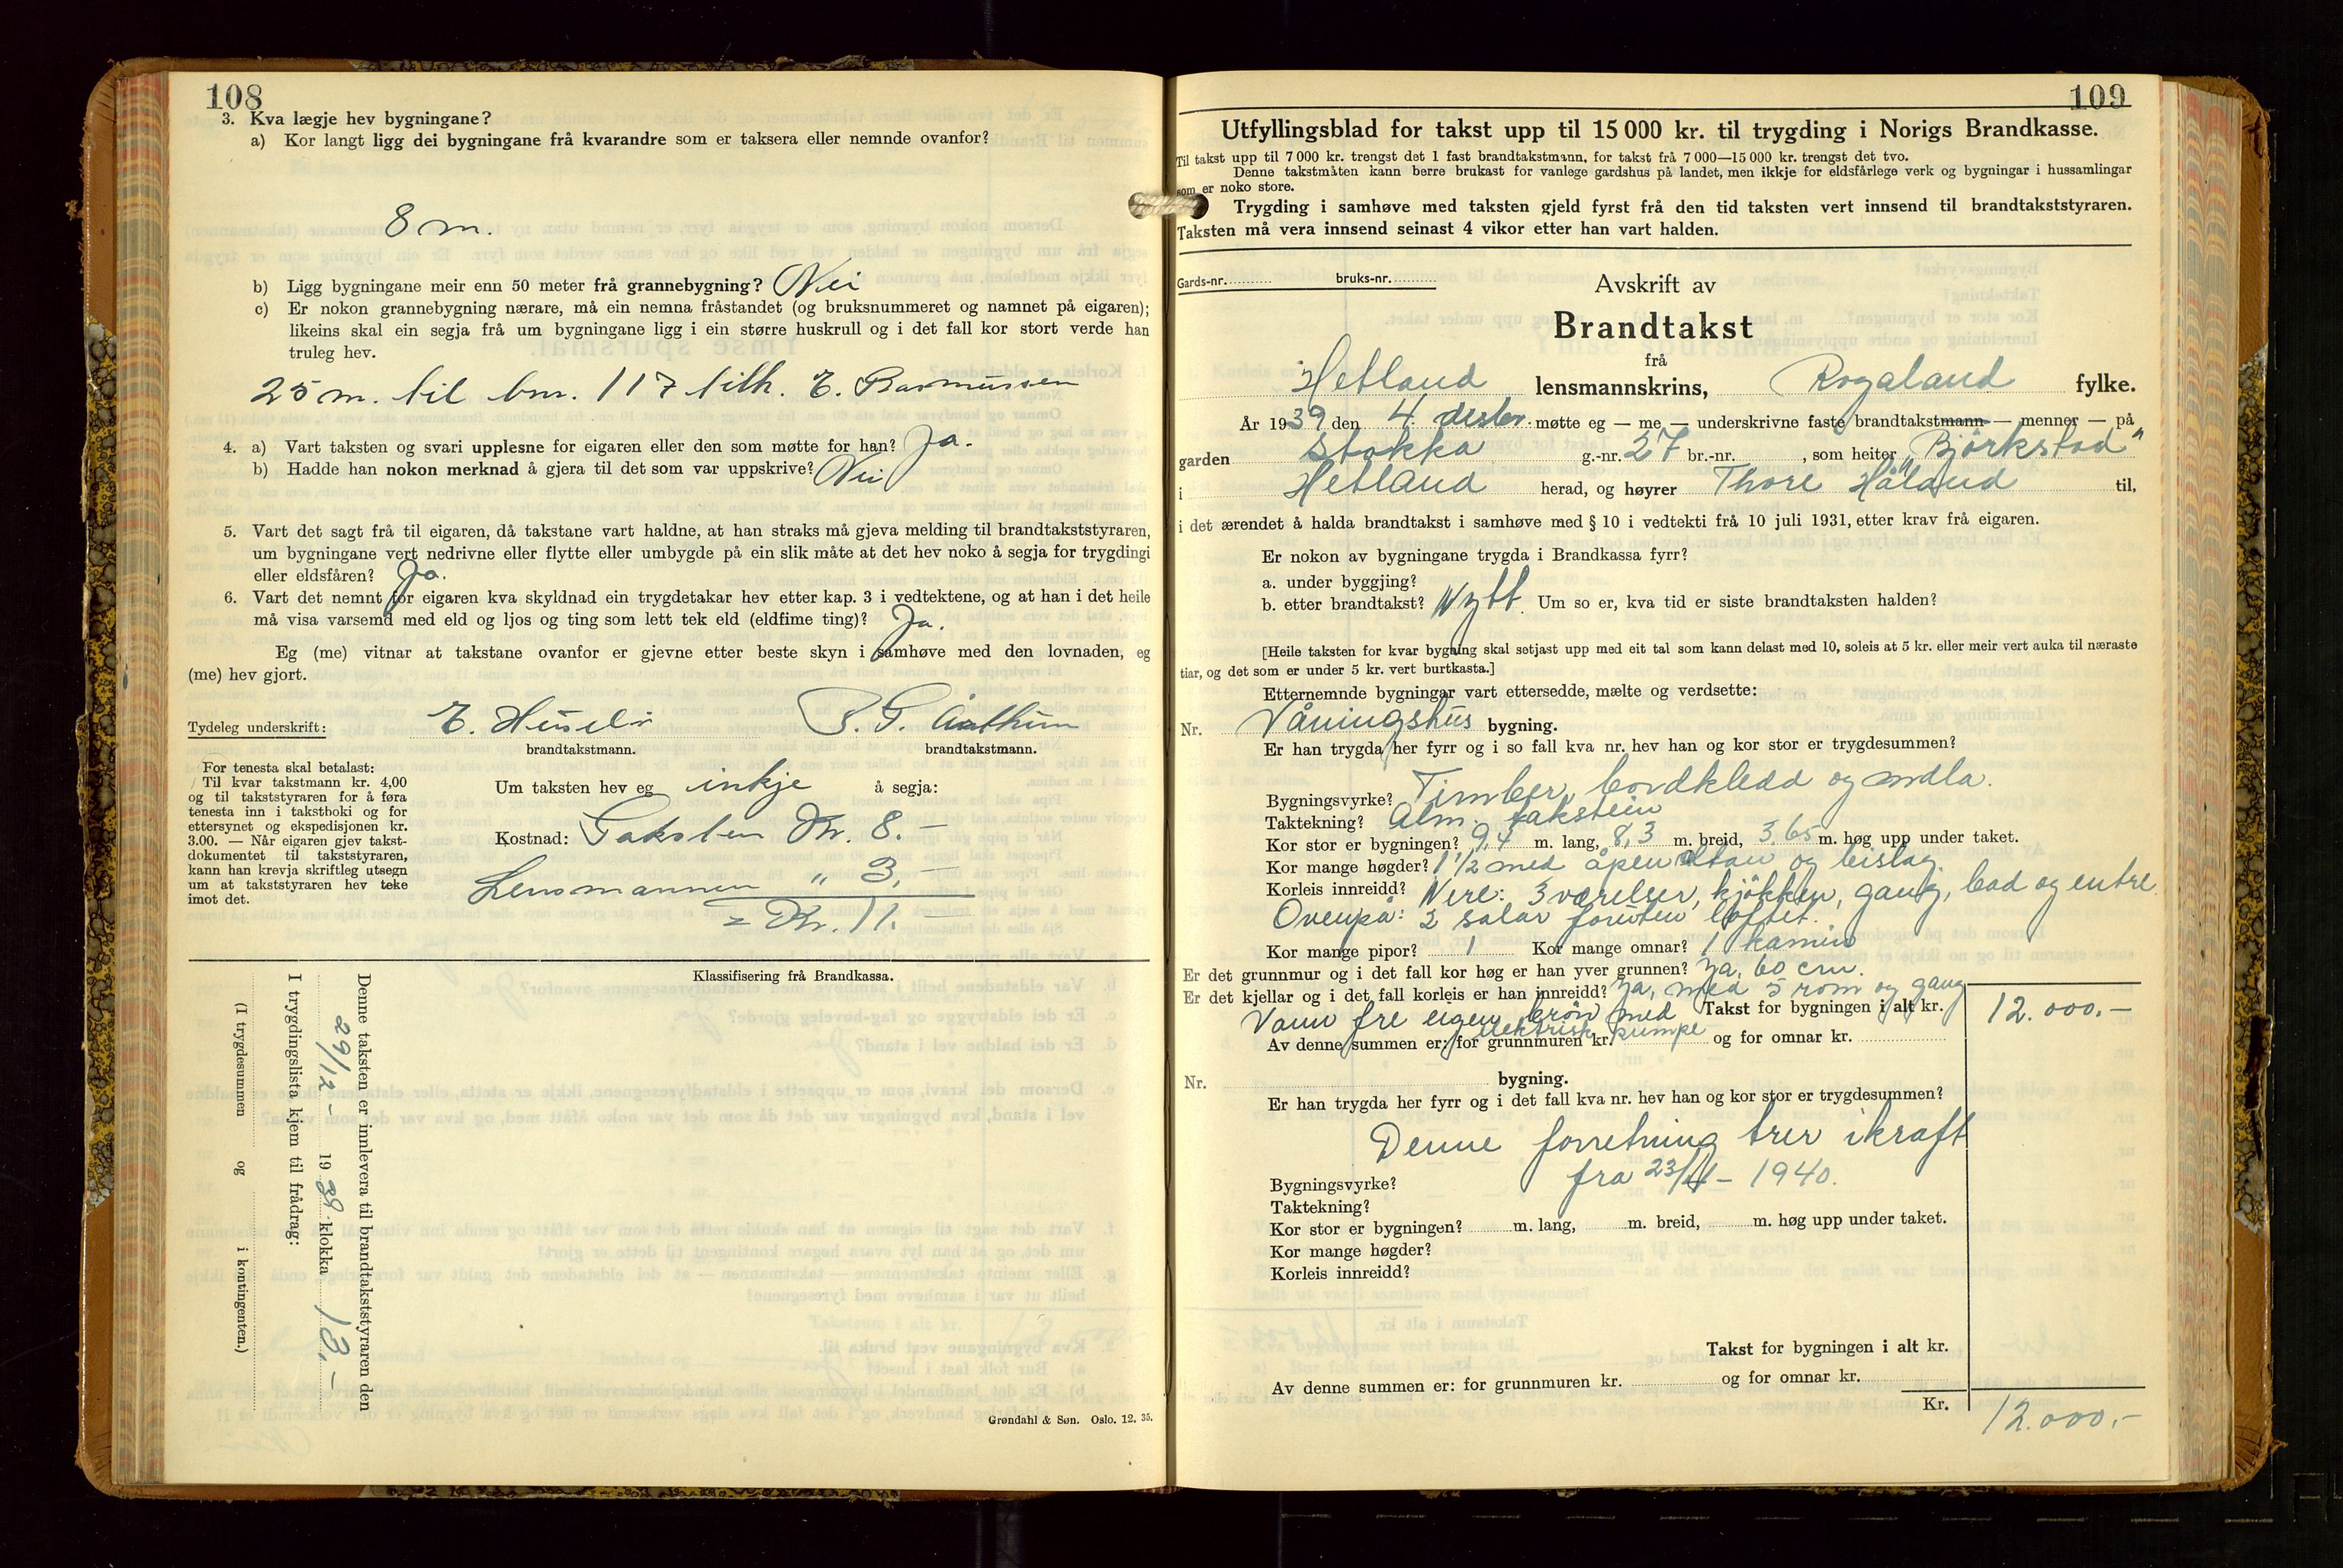 108
3. Kva lægje hev bygningane?
a) Kor langt ligg dei bygningane frå kvarandre som er taksera eller nemnde ovanfor?
8 m.
b) Ligg bygningane meir enn 50 meter frå grannebygning? Nei
c) Er nokon grannebygning nærare, må ein nemna fråstandet (og bruksnummeret og namnet på eigaren);
likeins skal ein segja frå um bygningane ligg i ein større huskrull og i det fall kor stort verde han
truleg hev.
25 m. til bnr. 117 tilh. E. Rasmussen
4. a) Vart taksten og svari upplesne for eigaren eller den som møtte for han? Ja.
b) Hadde han nokon merknad å gjera til det som var uppskrive? Nei
5. Vart det sagt frå til eigaren, då takstane vart haldne, at han straks må gjeva melding til brandtakststyraren,
um bygningane vert nedrivne eller flytte eller umbygde på ein slik måte at det hev noko å segja for trygdingi
eller eldsfåren? Ja.
6. Vart det nemnt for eigaren kva skyldnad ein trygdetakar hev etter kap. 3 i vedtektene, og at han i det heile
må visa varsemd med eld og ljos og ting som lett tek eld (eldfime ting)? Ja.
Eg (me) vitnar at takstane ovanfor er gjevne etter beste skyn i samhøve med den lovnaden, eg
(me) hev gjort.
Tydeleg underskrift: E.
brandtakstmann. brandtakstmann.
For tenesta skal betalast:
Til kvar takstmann kr. 4,00
og til takststyraren for å føra
tenesta inn i takstboki og for
ettersynet og ekspedisjonen kr.
3.00. — Når eigaren gjev takst-
dokumentet til takststyraren,
kann han krevja skriftleg utsegn
um at takststyraren hev teke
imot det.
Um taksten hev eg inkje å segja:
Kostnad: Taksten Kr. 8. —
Lensmannen " 3, —
= Kr. 11. —
Klassifisering frå Brandkassa.
Denne taksten er innlevera til brandtakststyraren den
29/12 — 1939 klokka 13. —
I trygdingslista kjem til frådrag:
(I trygdesummen og i kontingenten.)
Grøndahl & Søn. Oslo. 12. 35.
109
Utfyllingsblad for takst upp til 15 000 kr. til trygding i Norigs Brandkasse.
Til takst upp til 7 000 kr. trengst det 1 fast brandtakstmann, for takst frå 7 000—15 000 kr. trengst det tvo.
Denne takstmåten kann berre brukast for vanlege gardshus på landet, men ikkje for eldsfårlege verk og bygningar i hussamlingar
som er noko store.
Trygding i samhøve med taksten gjeld fyrst frå den tid taksten vert innsend til brandtakststyraren.
Taksten må vera innsend seinast 4 vikor etter han vart halden.
Gards-nr. bruks-nr.
Avskrift av
Brandtakst
frå
Hetland lensmannskrins, Rogaland fylke.
År 1939 den 4. desbr. møtte eg — me — underskrivne faste brandtakstmann — menner — på
garden Stokka g.-nr. 27 br.-nr. , som heiter "Bjørkstad"
i Hetland herad, og høyrer Thore Håland til,
i det ærendet å halda brandtakst i samhøve med § 10 i vedtekti frå 10 juli 1931, etter krav frå eigaren.
Er nokon av bygningane trygda i Brandkassa fyrr?
a. under byggjing?
b. etter brandtakst? Nytt. Um so er, kva tid er siste brandtaksten halden?
[Heile taksten for kvar bygning skal setjast upp med eit tal som kann delast med 10, soleis at 5 kr. eller meir vert auka til næraste
tiar, og det som er under 5 kr. vert burtkasta.]
Etternemnde bygningar vart ettersedde, mælte og verdsette:
Nr. Våningshus bygning.
Er han trygda her fyrr og i so fall kva nr. hev han og kor stor er trygdesummen?
Bygningsvyrke? Timber, bordkledd og måla.
Taktekning? Alm. takstein
Kor stor er bygningen? 9,4 m. lang, 8,3 m. breid, 3,65 m. høg upp under taket.
Kor mange høgder? 1 1/2 med åpen altan og bislag
Korleis innreidd? Nere: 3 værelser, kjøkken, gang, bad og entre.
Ovenpå: 2 salar foruten loftet.
Kor mange pipor? 1 Kor mange omnar? 1 kamin
Er det grunnmur og i det fall kor høg er han yver grunnen? Ja, 60 cm.
Er det kjellar og i det fall korleis er han innreidd? Ja, med 5 rom og gang
Vann fre eigen brønn med Takst for bygningen i alt kr. 12.000.—
elektrisk pumpe
Av denne summen er: for grunnmuren kr. og for omnar kr.
Nr. bygning.
Er han trygda her fyrr og i det fall kva nr. hev han og kor stor er trygdesummen?
Denne forretning trer i kraft
fra 23/4 — 1940.
Bygningsvyrke?
Taktekning?
Kor stor er bygningen? m. lang, m. breid, m. høg upp under taket.
Kor mange høgder?
Korleis innreidd?
Takst for bygningen i alt kr.
Av denne summen er: for grunnmuren kr. og for omnar kr.
Kr. 12.000,—